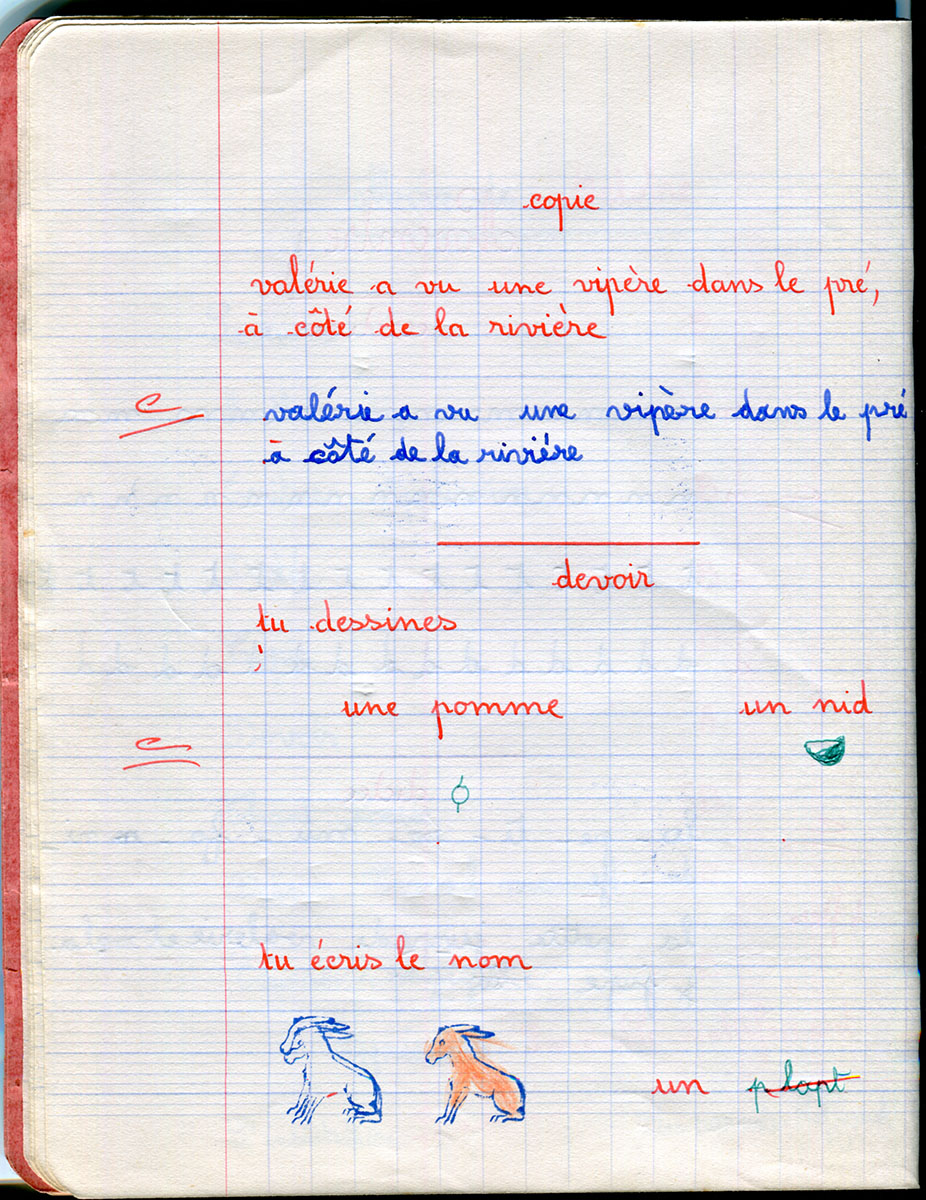 copie
valérie a vu une vipère dans le pré,
à côté de la rivière
e
valérie a vu une vipère dans le pré
à côté de la riviére
devoir
tu dessines
;
une pomme un nid
e
tu écris le nom
un p lapt